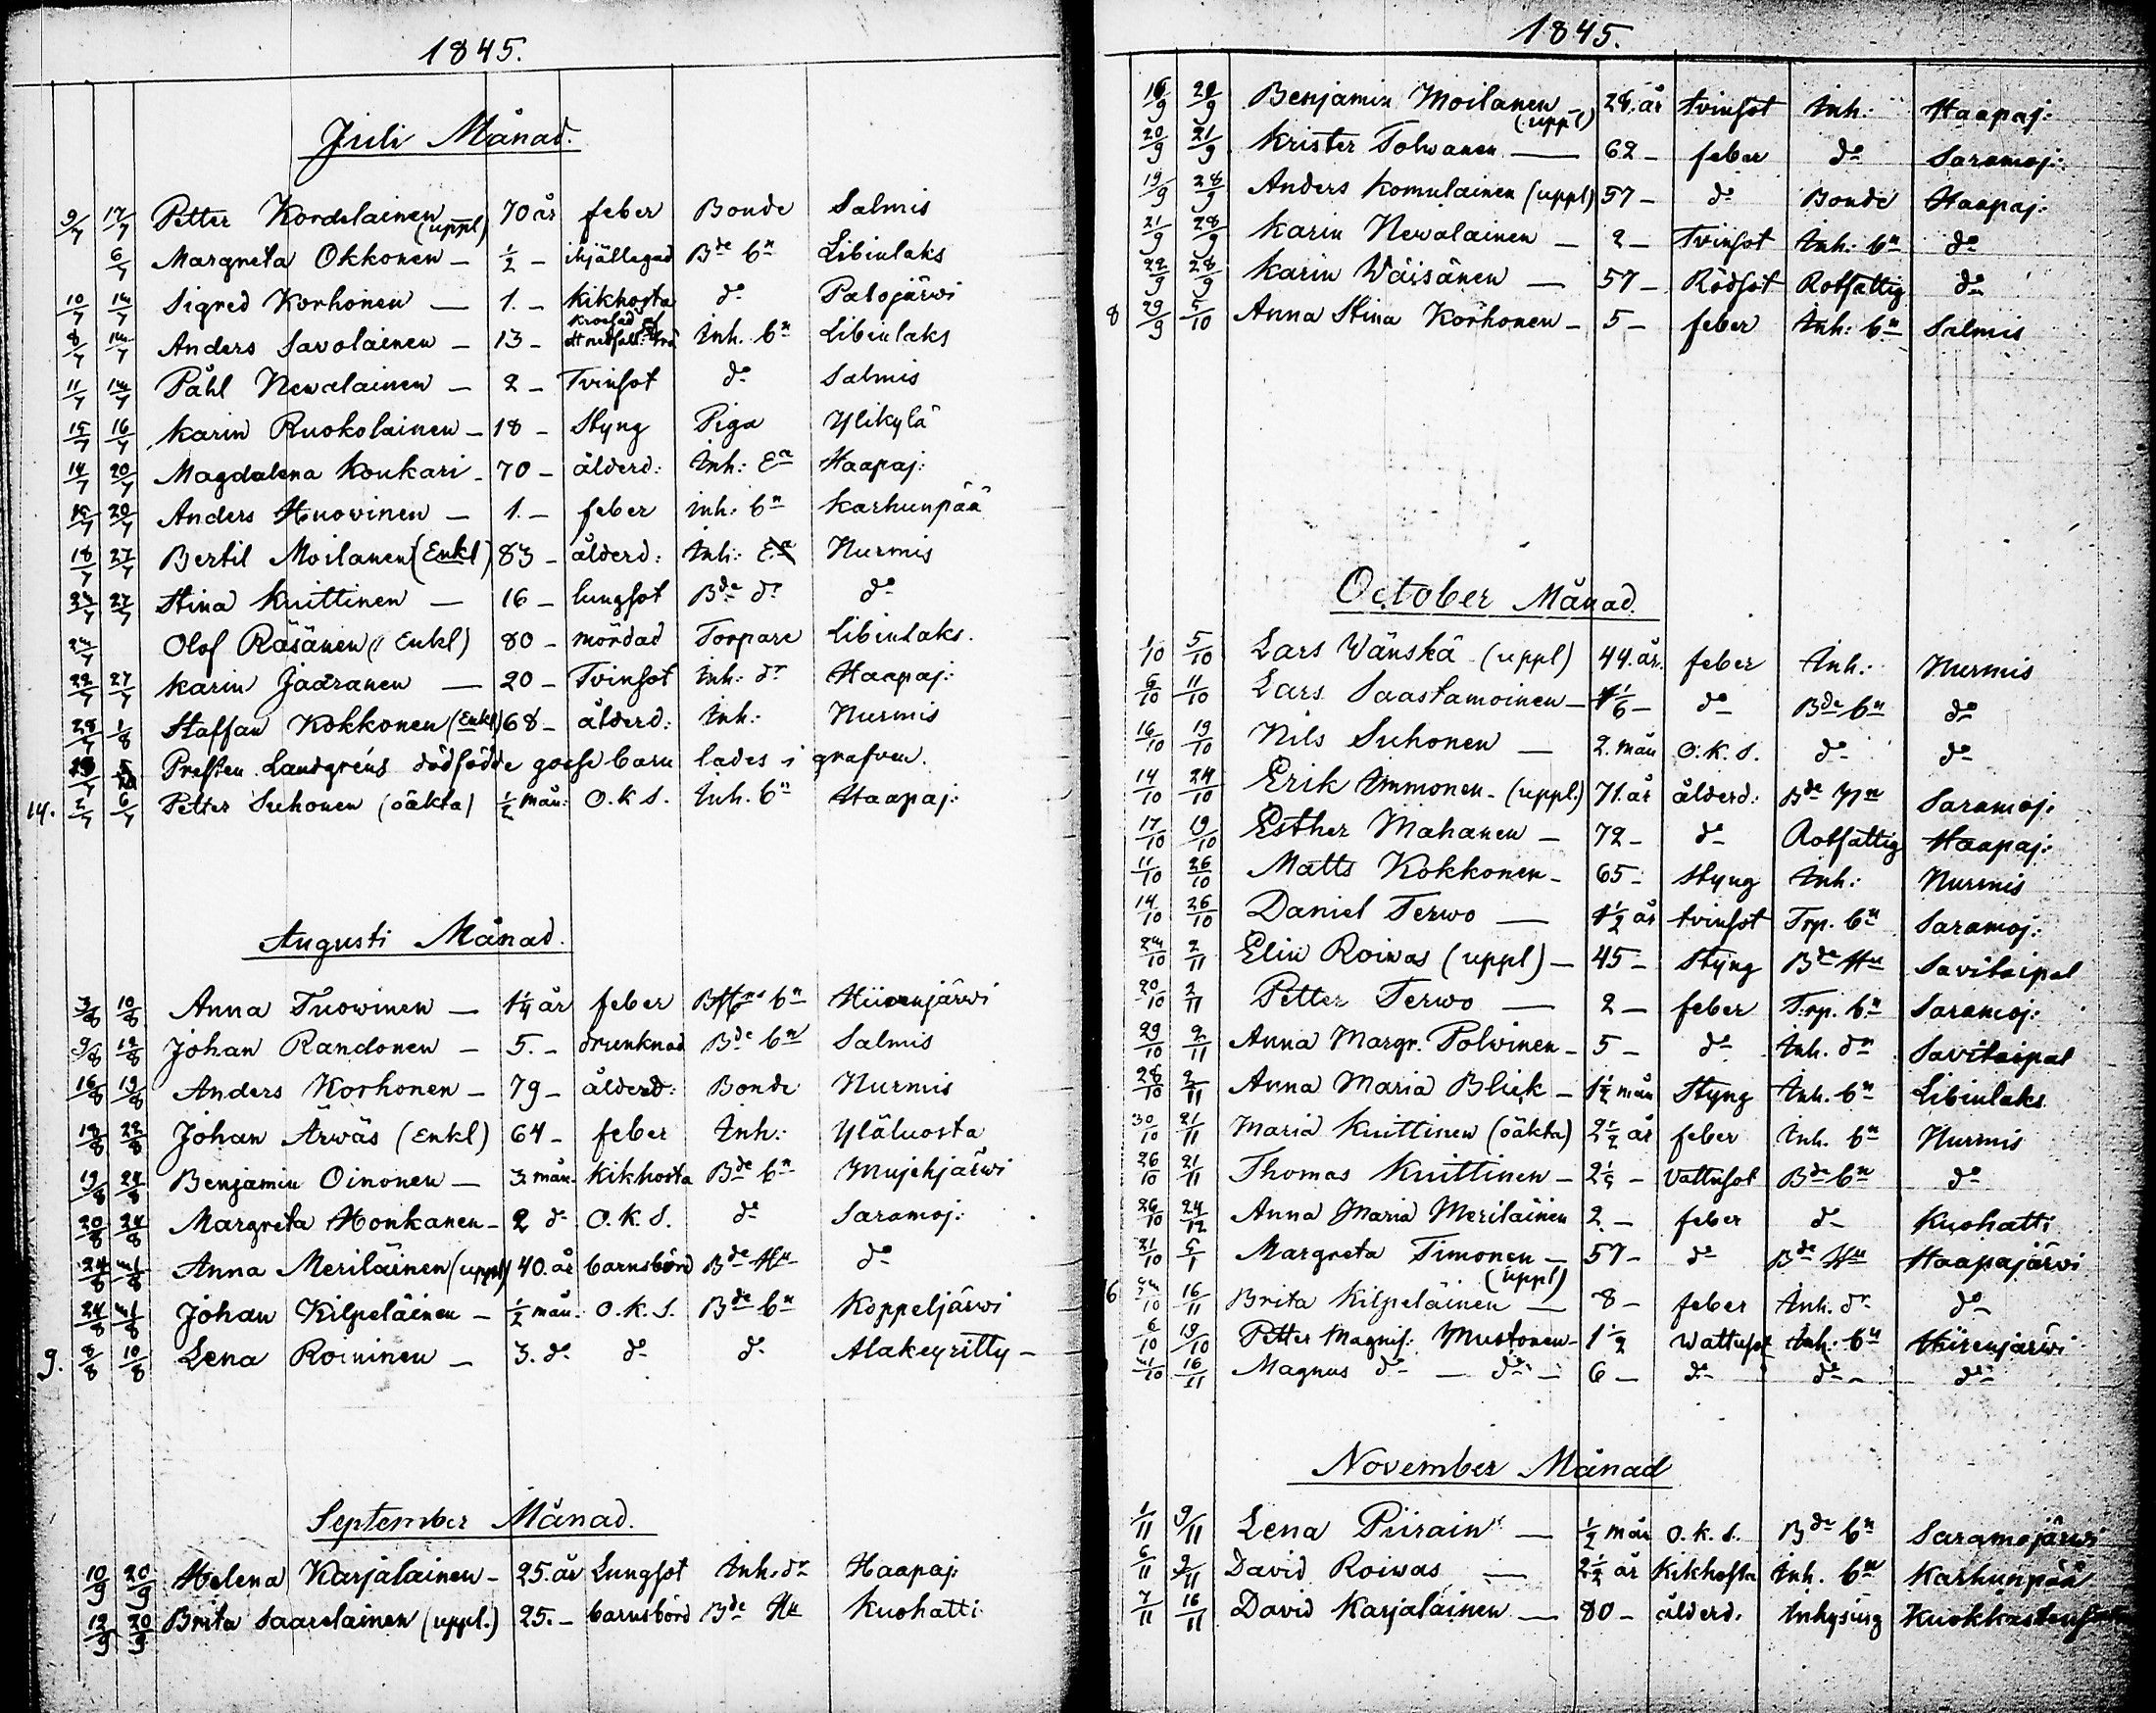 1845.
Juli Månad.
9/7 17/7 Petter Kordelainen (uppl) 70 år feber Bonde Salmis
6/7 Margreta Okkonen — ½ — ihjällegad Bde bn Libiulaks
10/7 14/7 Sigred Korhonen — 1. — Kikhosta do Palojärwi
8/7 14/7 Anders Savolainen — 13 — krossad af nedfall. trä Inh. bn Libiulaks
11/7 14/7 Påhl Newalainen — 2 — Tvinsot do Salmis
15/7 16/7 Karin Ruokolainen — 18 — Styng Piga Ylikylä
14/7 20/7 Magdalena Koukari — 70 — ålderd: Inh: Ea Haapaj:
15/7 20/7 Anders Huovinen — 1. — feber inh: bn Karhunpää
18/7 27/7 Bertil Moilanen (Enkl) 83 — ålderd: Inh: Nurmis
24/7 27/7 Stina Kuittinen — 16 — lungsot Bde dr do
24/7 Olof Räsänen (Enkl) 80 — mördad Torpare Libiulaks.
22/7 27/7 Karin Jääranen — 20 — Tvinsot Inh: dr Haapaj:
28/7 1/8 Staffan Kokkonen (Enkl) 68 — ålderd: Inh: Nurmis
Presten Landgréns dödfödde gosse barn lades i grafven.
14. 2/7 6/7 Petter Suhonen (oäkta) ½ mån: O.K.S. Inh. bn Haapaj:
Augusti Månad.
3/8 10/8 Anna Tuowinen — 1¼ år feber bn Hiirenjärwi
9/8 12/8 Johan Randonen — 5. — drunknad Bde bn Salmis
16/8 19/8 Anders Korhonen — 79 — ålderd: Bonde Nurmis
18/8 22/8 Johan Ärwäs (Enkl) 64 — feber Inh: Yläluosta
19/8 24/8 Benjamin Oinonen — 3. mån. Kikhosta Bde bn Mujehjärwi
20/8 24/8 Margreta Honkanen — 2 do O.K.S. do Saramoj:
24/8 31/8 Anna Meriläinen (uppl) 40. år barnsbörd Bde Hu do
24/8 31/8 Johan Kilpeläinen — ½ mån. O.K.S. Bde bn Koppeljärwi
9. 8/8 10/8 Lena Roininen — 3. do do do Alakeyritty —
September Månad.
10/9 20/9 Helena Karjalainen — 25. år Lungsot Inh. dr Haapaj:
12/9 20/9 Brita Saarelainen (uppl.) 25. — barnsbörd Bde Hu Kuohatti
1845.
16/9 21/9 Benjamin Moilanen — (uppl) 28. år tvinsot Inh: Haapaj:
20/9 21/9 Krister Tolwanen — 62 — feber do Saramoj:
19/9 28/9 Anders Komulainen (uppl) 57 — do Bonde Haapaj:
21/9 28/9 Karin Newalainen — 2 — Tvinsot Inh: bn do
22/9 28/9 Karin Wäisänen — 57 — Rödsot Rotfattig do
8 29/9 5/10 Anna Stina Korhonen — 5 — feber Inh: bn Salmis
October Månad.
1/10 5/10 Lars Wänskä (uppl) 44. år. feber Inh: Nurmis
6/10 11/10 Lars Saastamoinen — 1/6 — do Bde bn do
16/10 19/10 Nils Suhonen — 2. mån O.K.S. do do
14/10 24/10 Erik Immonen — (uppl.) 71. år ålderd: Bde Saramoj:
17/10 19/10 Esther Mahanen — 72 — do Rotfattig Haapaj:
11/10 26/10 Matts Kokkonen — 65 — Styng Inh: Nurmis
14/10 26/10 Daniel Terwo — 1½ år tvinsot Trp. bn Saramoj:
24/10 2/11 Elin Roiwas (uppl) — 45 — Styng Bde Hu Savikaipal
20/10 2/11 Petter Terwo — 2 — feber Trp. bn Saramoj:
29/10 9/11 Anna Margr. Polvinen — 5 — do Inh. dr Savikaipal
28/10 9/11 Anna Maria Blick — 1½ mån Styng Inh. bn Libiulaks
30/10 21/11 Maria Kuittinen (oäkta) 2½ år feber Inh. bn Nurmis
26/10 21/11 Thomas Kuittinen — 2½ — Vattusot Bde bn do
26/10 24/12 Anna Maria Meriläinen 2 — feber do Kuohatti
21/10 6/1 Margreta Timonen — (uppl) 57 — do Bde Hu Haapajärvi
16 16/11 Brita Kilpeläinen — 8 — feber Inh. dr do
6/10 19/10 Petter Magnus: Mustonen — 1½ Wattusot Inh: bn Hiirenjärwi
31/10 16/11 Magnus do — do — 6 — do do do
November Månad
1/11 9/11 Lena Piirain: — ½ mån O.K.S. Bde bn Saramojärwi
6/11 9/11 David Roiwas — 2½ år Kikhosta Inh. bn Karhunpää
7/11 16/11 David Karjalainen — 80 — ålderd. Inhysing